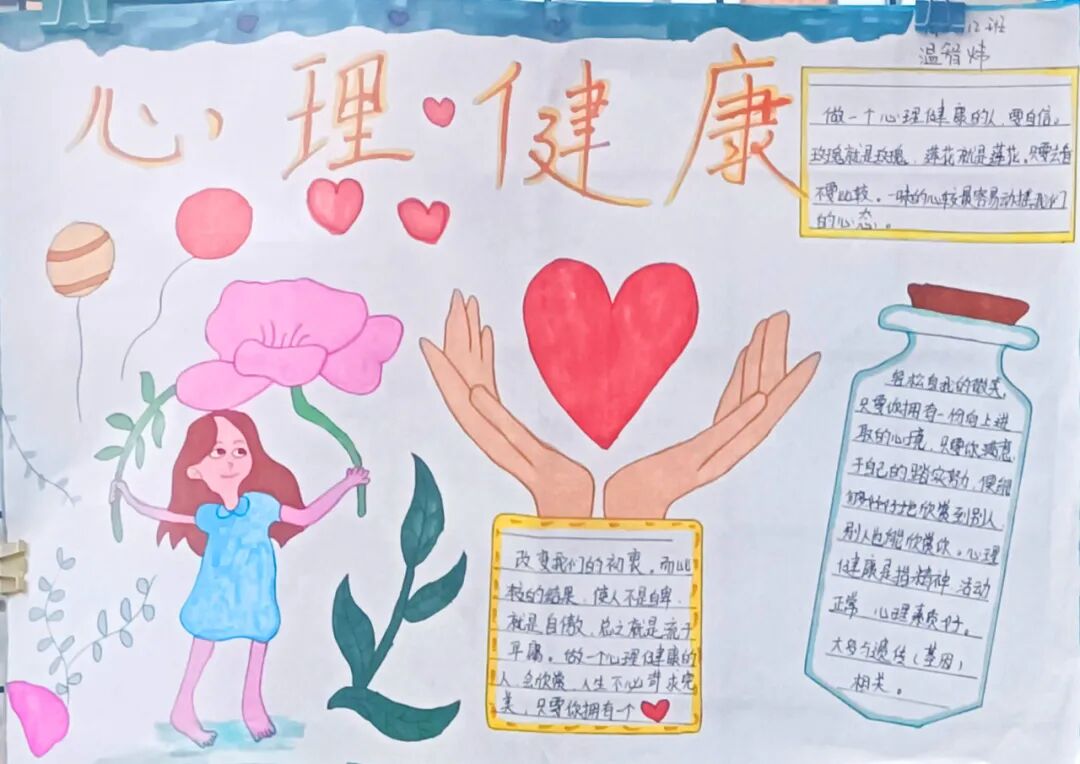 心理健康
12班
做一个心理健康的人,要自信。
玫瑰就是玫瑰,莲花就是莲花,只要去看
不要比较。一味的比较最容易动摇我们
的心态。
改变我们的初衷。而比
较的结果,使人不是自卑,
就是自傲,总之就是流于
平庸。做一个心理健康的
人,会欣赏,人生不必苛求完
美,只要你拥有一个
轻松自我的微笑,
只要你拥有一份向上进
取的心境,只要你满意
于自己的踏实努力,便能
够好好地欣赏到别人
别人也能欣赏你。心理
健康是指精神、活动
正常、心理素质好。
大多与遗传(基因)
相关。